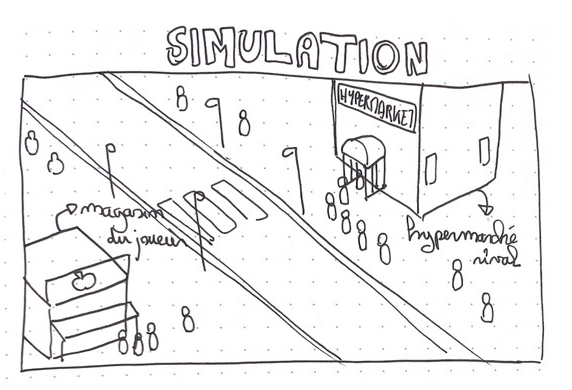 SIMULATION
HYPERMARKET
magasin
du joueur
hypermarché
rival